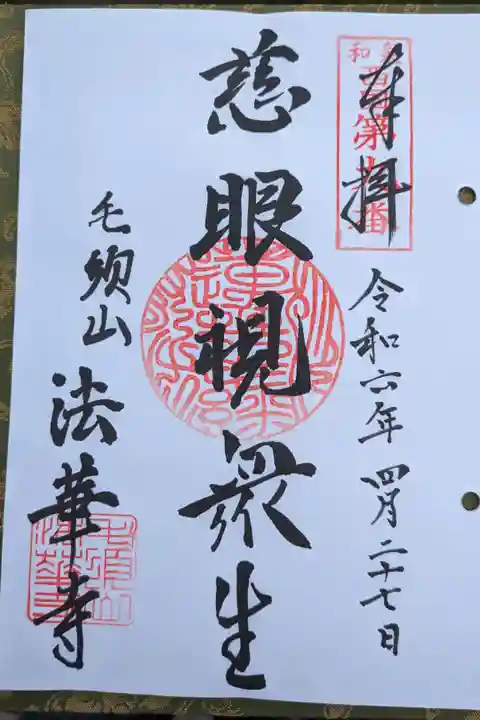 奉拝
令和六年 四月二十七日
慈眼視衆生
毛須山 法華寺